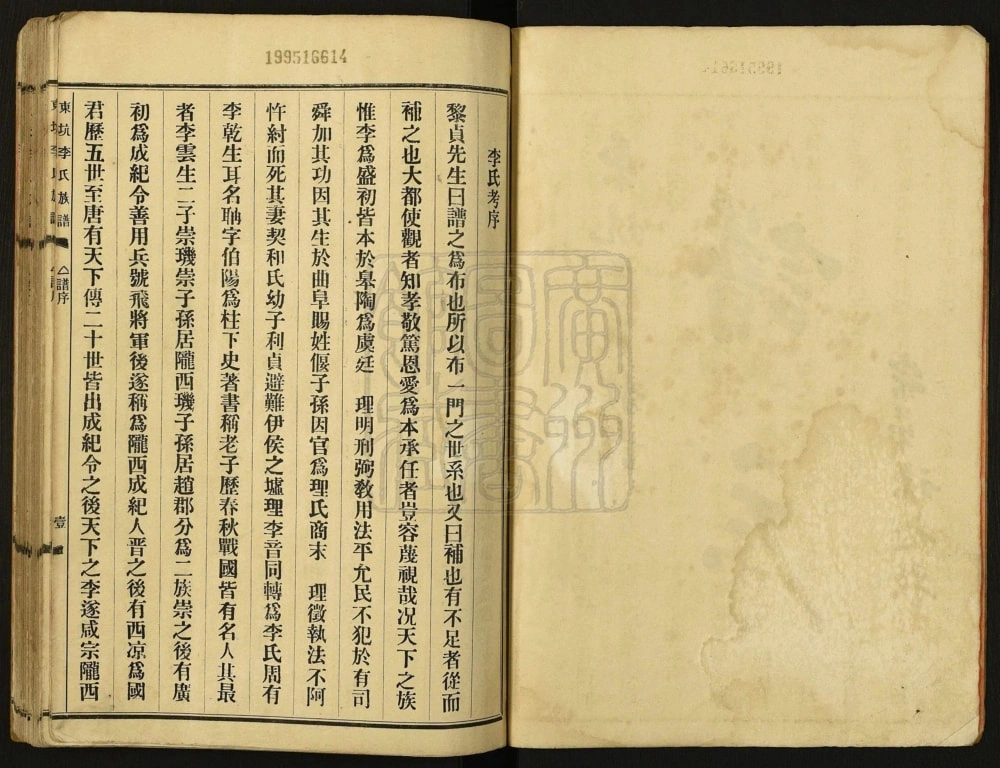 199516614
李氏考序
黎貞先生曰譜之爲布也所以布一門之世系也又曰補也有不足者從而
補之也大都使觀者知孝敬篤恩愛爲本承任者豈容蔑視哉况天下之族
惟李爲盛初皆本於皋陶爲虞廷　理明刑弼敎用法平允民不犯於有司
舜加其功因其生於曲阜賜姓偃子孫因官爲理氏商末　理徵執法不阿
忤紂而死其妻契和氏幼子利貞避難伊侯之墟理李音同轉爲李氏周有
李乾生耳名聃字伯陽爲柱下史著書稱老子歷春秋戰國皆有名人其最
者李雲生二子崇璣崇子孫居隴西璣子孫居趙郡分爲二族崇之後有廣
初爲成紀令善用兵號飛將軍後遂稱爲隴西成紀人晋之後有西凉爲國
君歷五世至唐有天下傳二十世皆出成紀令之後天下之李遂咸宗隴西
東坑李氏族譜
△譜序
壹